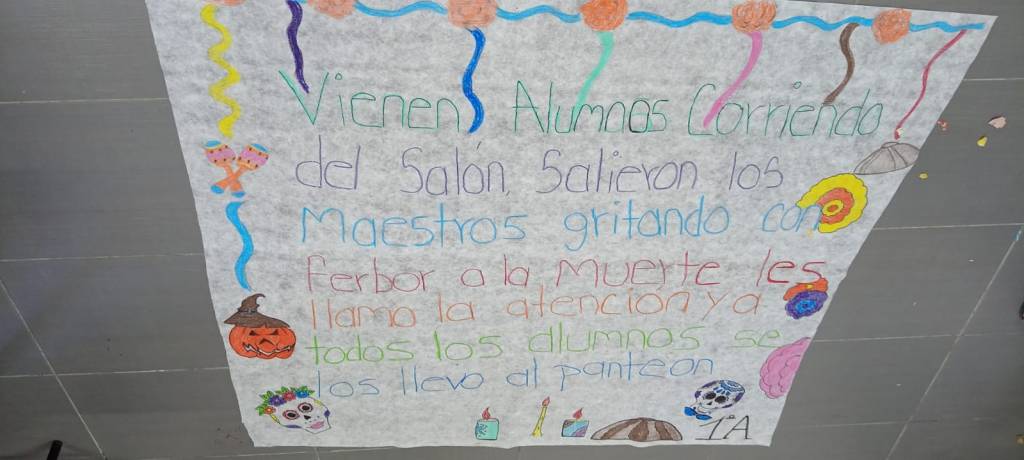 Vienen Alumnos Corriendo
del Salón. Salieron los
Maestros gritando con
ferbor a la Muerte les
llamo la atencion y a
todos los alumnos se
los llevo al panteon
1°A